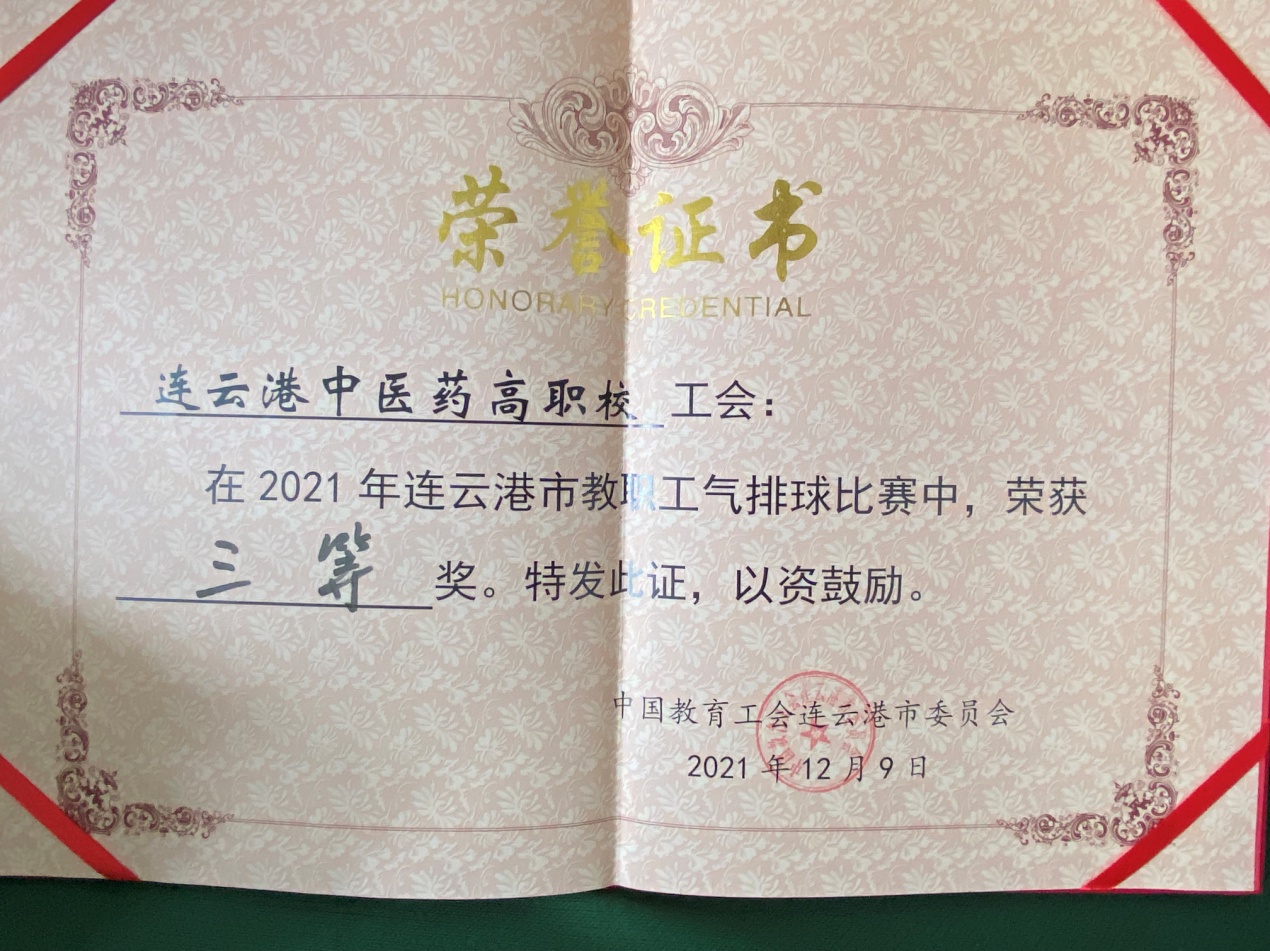 荣誉证书
HONORARY CREDENTIAL
连云港中医药高职校 工会：
在 2021 年连云港市教职工气排球比赛中，荣获
三等 奖。特发此证，以资鼓励。
中国教育工会连云港市委员会
2021 年 12 月 9 日